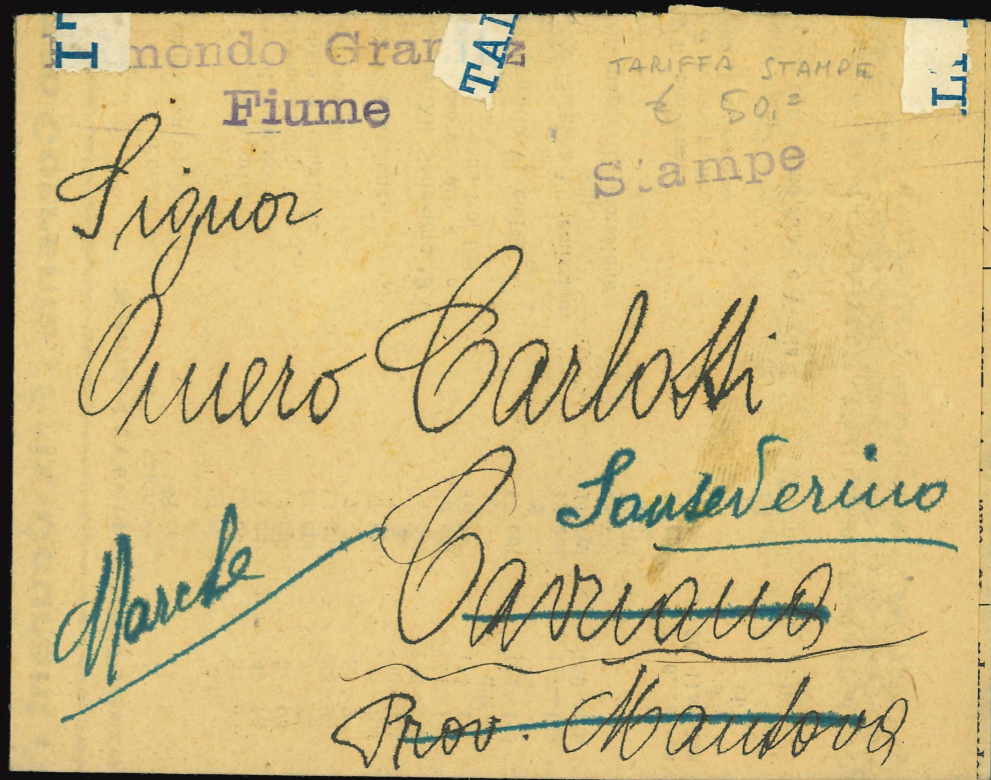 mondo Gran z
Fiume
TARIFFA STAMPE
€ 50.=
Stampe
Signor
Omero Carlotti
Sanseverino
Marche
Cavriana
Prov. Mantova